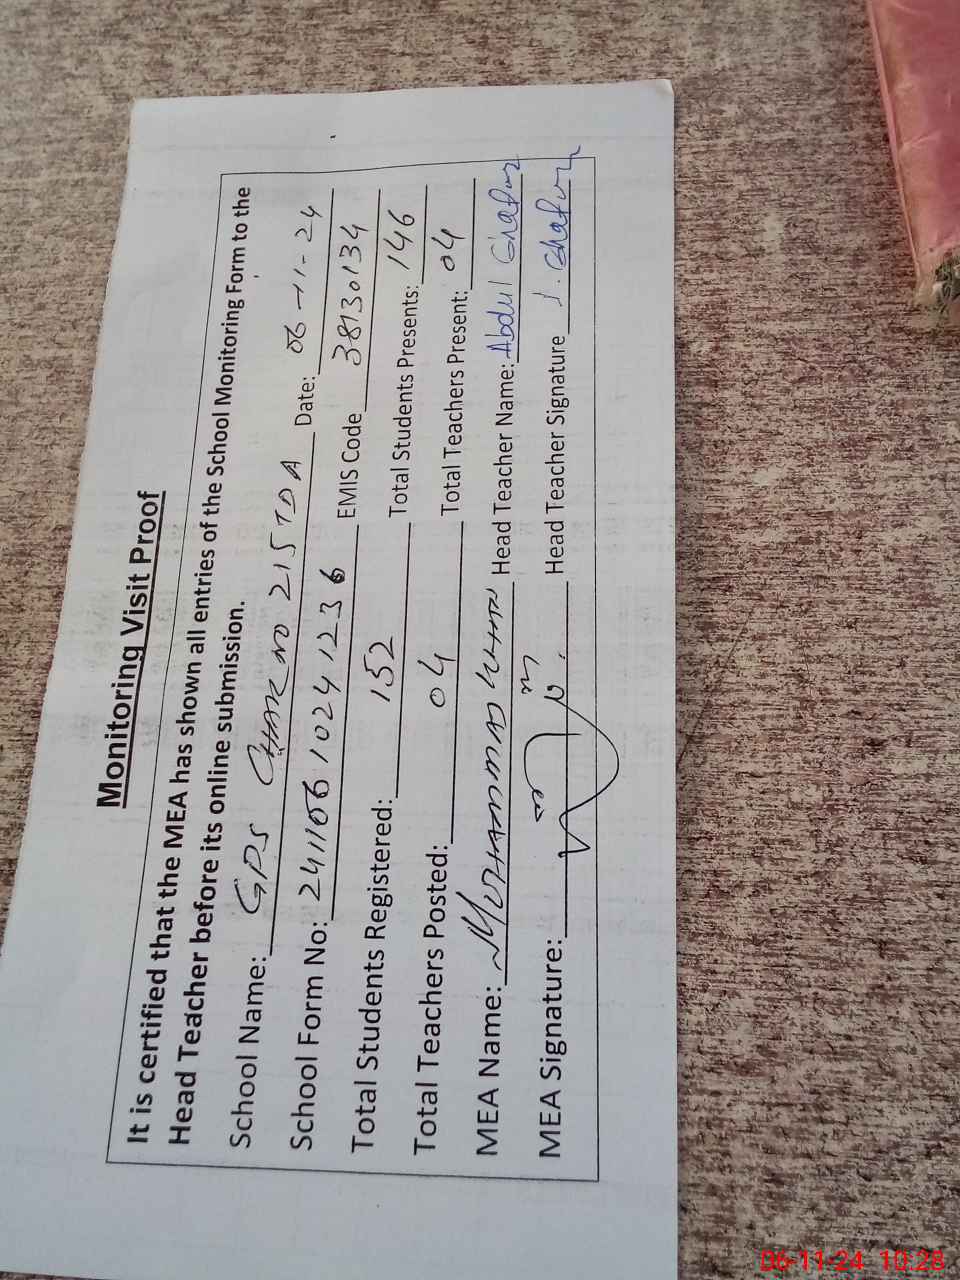 Monitoring Visit Proof
It is certified that the MEA has shown all entries of the School Monitoring Form to the
Head Teacher before its online submission.
School Name: GPS CHAK NO 215 TDA Date: 06-11-24
School Form No: 241106 1024 1236 EMIS Code 38130134
Total Students Registered: 152 Total Students Presents: 146
Total Teachers Posted: 04 Total Teachers Present: 04
MEA Name: MUHAMMAD Head Teacher Name: Abdul Ghafur
MEA Signature: Head Teacher Signature Ghafur
06-11-24 10:28